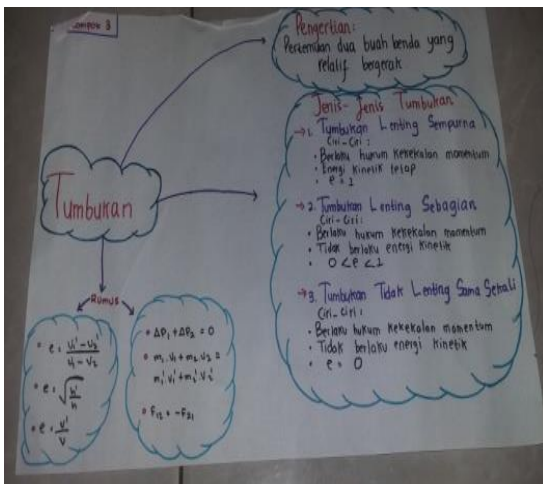 Kelompok 3
Pengertian:
Pertemuan dua buah benda yang
relatif bergerak
Tumbukan
Jenis-Jenis Tumbukan
→ 1. Tumbukan Lenting Sempurna
Ciri-Ciri:
• Berlaku hukum kekekalan momentum
• Energi kinetik tetap
• e = 1
→ 2. Tumbukan Lenting Sebagian
Ciri-Ciri:
• Berlaku hukum kekekalan momentum
• Tidak berlaku energi kinetik
• 0 < e < 1
→ 3. Tumbukan Tidak Lenting Sama Sekali
Ciri-Ciri:
• Berlaku hukum kekekalan momentum
• Tidak berlaku energi kinetik
• e = 0
Rumus
• e = V₁' - V₂' / V₁ - V₂
• e = √h'/h
• e = V'/V
• ΔP₁ + ΔP₂ = 0
• m₁.V₁ + m₂.V₂ =
m₁'V₁' + m₂'V₂'
• F₁₂ = -F₂₁